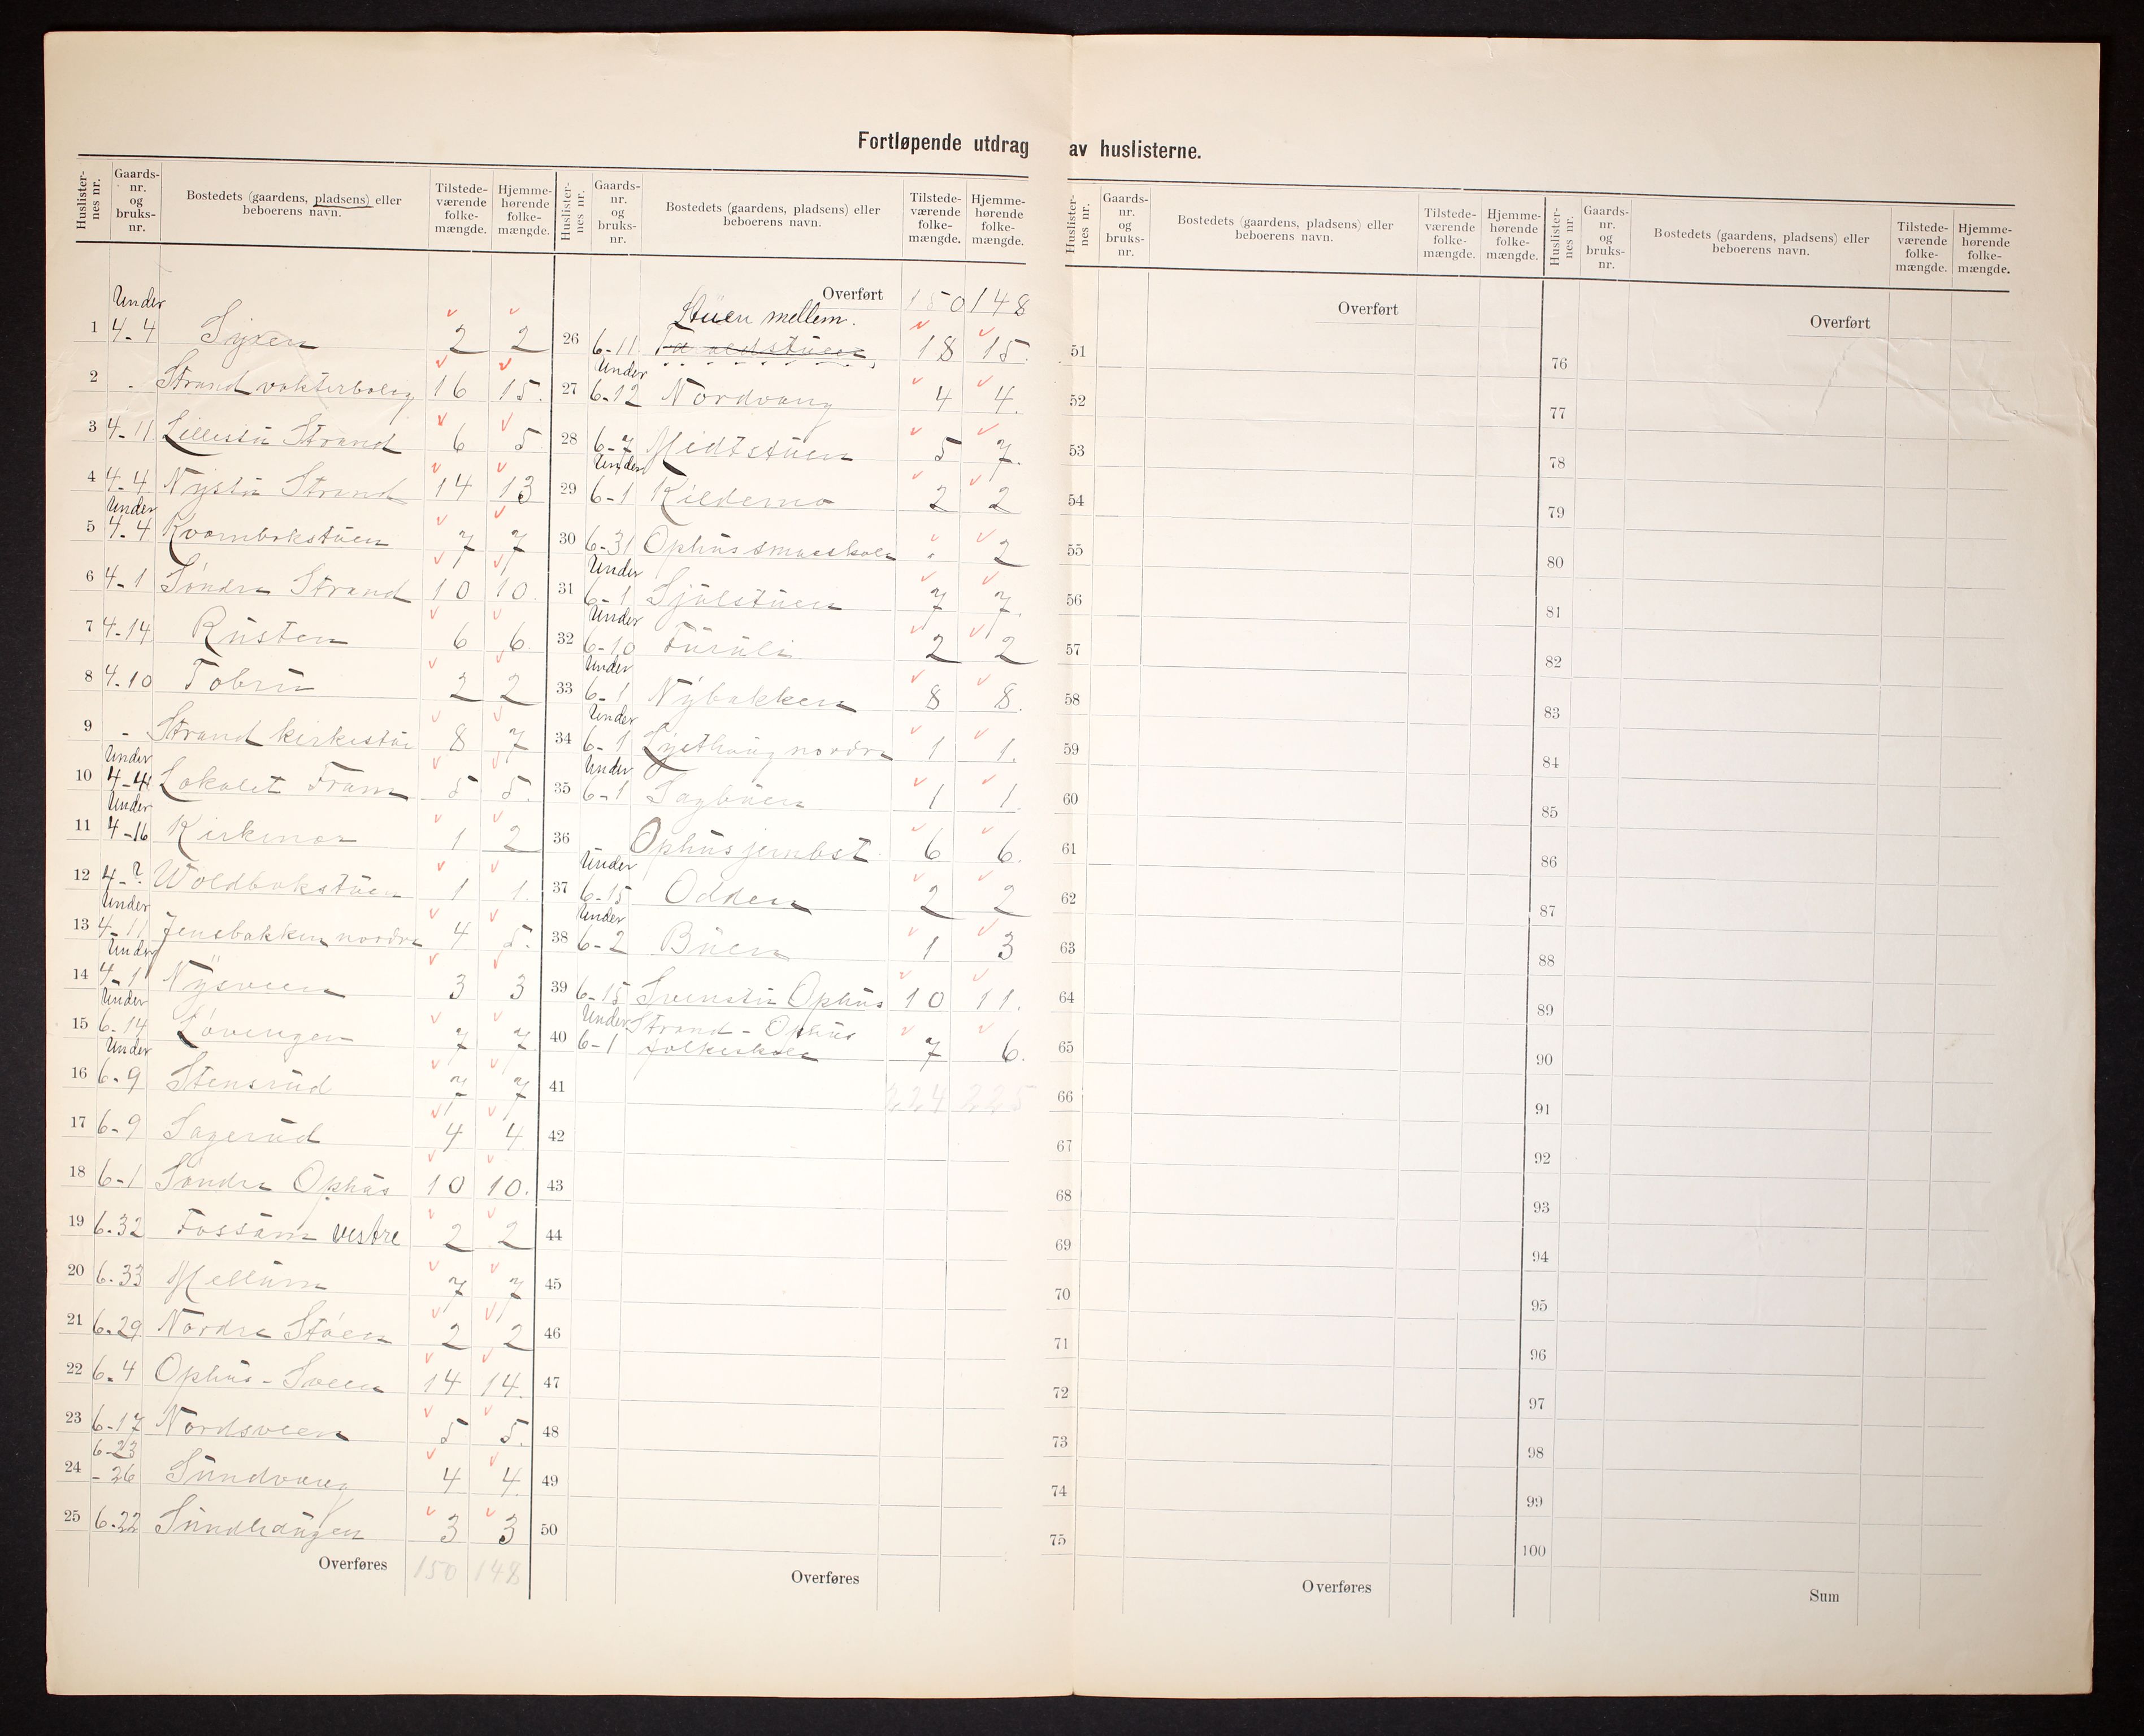 Fortløpende utdrag av huslisterne.
Huslisternes nr. Gaards-nr. og bruks-nr. Bostedets (gaardens, pladsens) eller beboerens navn. Tilstedeværende folkemængde. Hjemmehørende folkemængde.
Under
1 4-4 2 2
2 - Strand vokterbolig 16 15.
3 4-11 Lillestu Strand 6 5
4 4-4 Nystu Strand 14 13
Under
5 4-4 Kvombekstuen 7 7
6 4-1 Søndre Strand 10 10.
7 4-14 Rusten 6 6
8 4.10 Tobru 2 2
9 - Strand kirkestue 8 7
Under
10 4-4 Lokalet Fram 5 5.
Under
11 4-16 Kirkemo 1 2
12 4-? Woldbakstuen 1 1.
Under
13 4-11 Jensbakken nordre 4 5.
Under
14 4-1 Nysveen 3 3
Under
15 6-14 Løvengen 7 7
Under
16 6-9 Stensrud 7 7
17 6-9 Sagerud 4 4
18 6-1 Søndre Ophus 10 10.
19 6.32 Fossum vestre 2 2
20 6.33 Mellum 7 7
21 6.29 Nordre Støen 2 2
22 6.4 Ophus-Sveen 14 14.
23 6-17 Nordsveen 5 5.
6-23
24 -26 Sundvang 4 4
25 6.22 Sundhaugen 3 3
Overføres 150 148
Huslisternes nr. Gaards-nr. og bruks-nr. Bostedets (gaardens, pladsens) eller beboerens navn. Tilstedeværende folkemængde. Hjemmehørende folkemængde.
Overført 150 148
Stuen mellem.
26 6-11 18 15.
Under
27 6-12 Nordvang 4 4.
28 6-7 Midtstuen 5 7.
Under
29 6-1 Kildemo 2 2
30 6-31 Ophus smaaskole . 2
Under
31 6-1 Sjulstuen 7 7.
Under
32 6-10 Furuli 2 2
Under
33 6-1 Nybakken 8 8.
Under
34 6-1 Lysthaug nordre 1 1.
Under
35 6-1 Sagbuen 1 1.
36 Ophus jernbst. 6 6.
Under
37 6-15 Odden 2 2
Under
38 6-2 Buen 1 3
39 6-15 Svenstu Ophus 10 11.
Under Strand - Ophus
40 6-1 folkeskole 7 6.
41 224 225
42
43
44
45
46
47
48
49
50
Overføres
Huslisternes nr. Gaards-nr. og bruks-nr. Bostedets (gaardens, pladsens) eller beboerens navn. Tilstedeværende folkemængde. Hjemmehørende folkemængde.
Overført
51
52
53
54
55
56
57
58
59
60
61
62
63
64
65
66
67
68
69
70
71
72
73
74
75
Overføres
Huslisternes nr. Gaards-nr. og bruks-nr. Bostedets (gaardens, pladsens) eller beboerens navn. Tilstedeværende folkemængde. Hjemmehørende folkemængde.
Overført
76
77
78
79
80
81
82
83
84
85
86
87
88
89
90
91
92
93
94
95
96
97
98
99
100
Sum